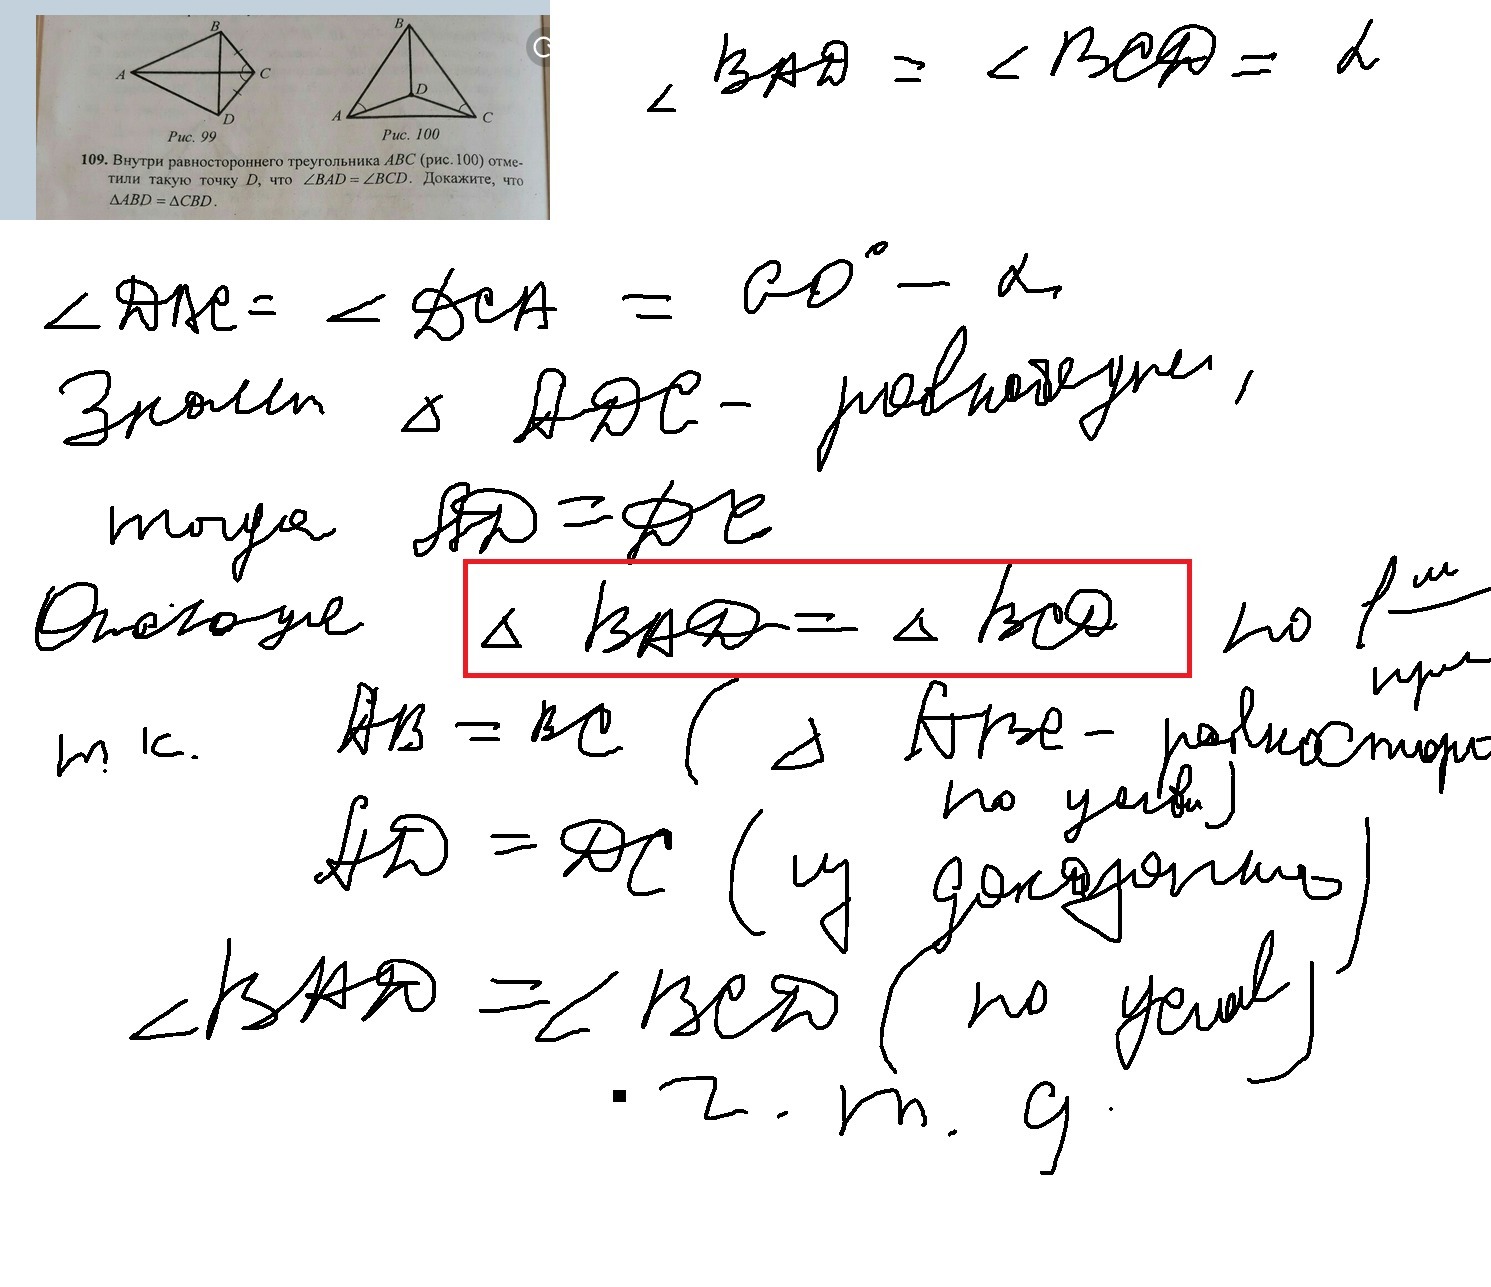 B
A
C
D
Рис. 99
B
D
A
C
Рис. 100
109. Внутри равностороннего треугольника ABC (рис. 100) отме-
тили такую точку D, что ∠BAD = ∠BCD. Докажите, что
ΔABD = ΔCBD.
∠BAD = ∠BCD = α
∠DAC = ∠DCA = 60° - α,
Значит Δ ADC - равнобедрен,
тогда AD = DC
Отсюда Δ BAD = Δ BCD по 1ому
т.к. AB = BC (Δ ABC - равностор
по услов)
AD = DC (из доказанного)
∠BAD = ∠BCD (по услов)
ч. т. д.